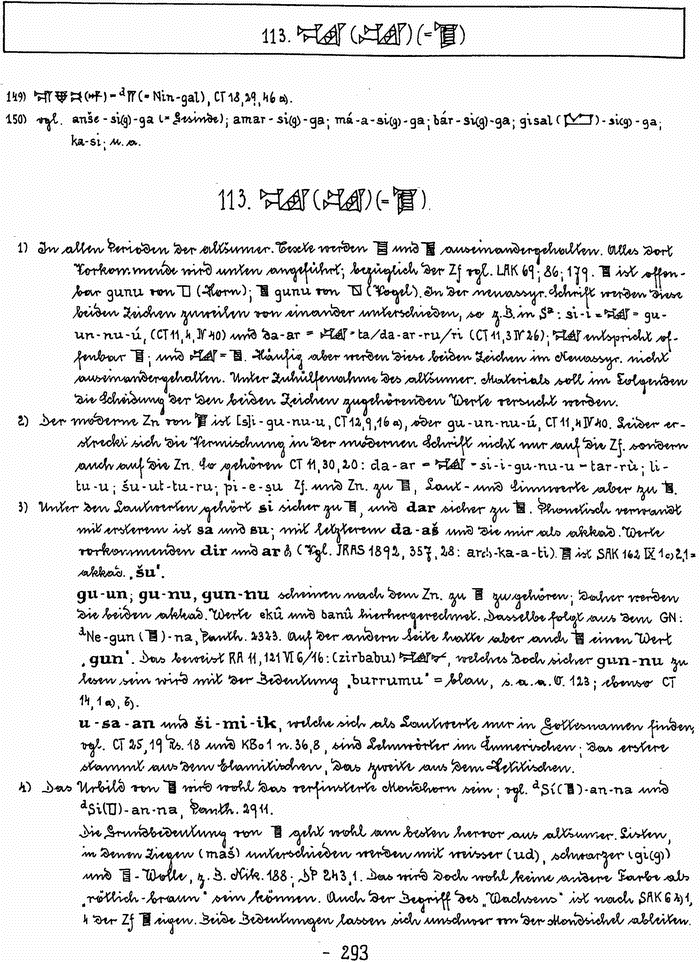 113. 𒁯 (𒁯) (=𒁯)
149) (𒀭) = ᵈ (= Nin-gal), CT 18, 29, 46 a).
150) vgl. anše-si(g)-ga (= Gesinde); amar-si(g)-ga; má-a-si(g)-ga; bár-si(g)-ga; gisal ( )-si(g)-ga;
ka-si; u. a.
113. ( ) (= ).
1) In alten Perioden der altsumer. Texte werden und auseinandergehalten. Alles dort
Vorkommende wird unten angeführt; bezüglich der Zf vgl. LAK 69; 86; 179. ist offen-
bar gunu von (Horn); gunu von (Vogel). In der neuassyr. Schrift werden diese
beiden Zeichen zuweilen von einander unterschieden, so z. B. in Sᵃ: si-i = = gu-
un-nu-ú, (CT 11, 4, IV 40) und da-ar = = ta/da-ar-ru/ri (CT 11, 3 IV 26); entspricht of-
fenbar ; und = . Häufig aber werden diese beiden Zeichen im Neuassyr. nicht
auseinandergehalten. Unter Zuhülfenahme des altsumer. Materials soll im Folgenden
die Scheidung der den beiden Zeichen zugehörenden Werte versucht werden.
2) Der moderne Zn von ist [s]i-gu-nu-u, CT 12, 9, 16 a), oder gu-un-nu-ú, CT 11, 4 IV 40. Leider er-
streckt sich die Vermischung in der modernen Schrift nicht nur auf die Zf. sondern
auch auf die Zn. So gehören CT 11, 30, 20: da-ar = = si-i-gu-nu-u = tar-rù; li-
tu-u; šu-ut-tu-ru; pi-e-ṣu Zf. und Zn. zu , Laut- und Sinnwerte aber zu .
3) Unter den Lautwerten gehört si sicher zu , und dar sicher zu . Phonetisch verwandt
mit ersterem ist sa und su; mit letzterem da-aš und die mir als akkad. Werte
vorkommenden dir und ar (Vgl. JRAS 1892, 357, 28: -ka-a-ti). ist SAK 162 IX 1c) 2,1 =
akkad. „šu".
gu-un; gu-nu, gun-nu scheinen nach dem Zn. zu zu gehören; daher werden
die beiden akkad. Werte ekû und banû hierhergerechnet. Dasselbe folgt aus dem GN:
ᵈNe-gun ( )-na, Panth. 2323. Auf der andern Seite hatte aber auch einen Wert
„gun". Das beweist RA 11, 121 VI 6/16: (zirbabu) , welches doch sicher gun-nu zu
lesen sein wird mit der Bedeutung „burrumu" = blau, s. a. a. O. 123; ebenso CT
14, 1 a), b).
u-sa-an und ši-mi-ik, welche sich als Lautwerte nur in Gottesnamen finden,
vgl. CT 25, 19 Rs. 18 und KBo 1 n. 36, 8, sind Lehnwörter im Sumerischen; das erstere
stammt aus dem Elamitischen, das zweite aus dem Hetitischen.
4) Das Urbild von wird wohl das verfinsterte Mondhorn sein; vgl. ᵈSí( )-an-na und
ᵈSi( )-an-na, Panth. 2911.
Die Grundbedeutung von geht wohl am besten hervor aus altsumer. Listen,
in denen Ziegen (maš) unterschieden werden mit weisser (ud), schwarzer (gi(g))
und -Wolle, z. B. Nik. 188; DP 243, 1. Das wird doch wohl keine andere Farbe als
„rötlich-braun" sein können. Auch der Begriff des „Wachsens" ist nach SAK 6 h) 1,
4 der Zf eigen. Beide Bedeutungen lassen sich unschwer von der Mondsichel ableiten.
- 293